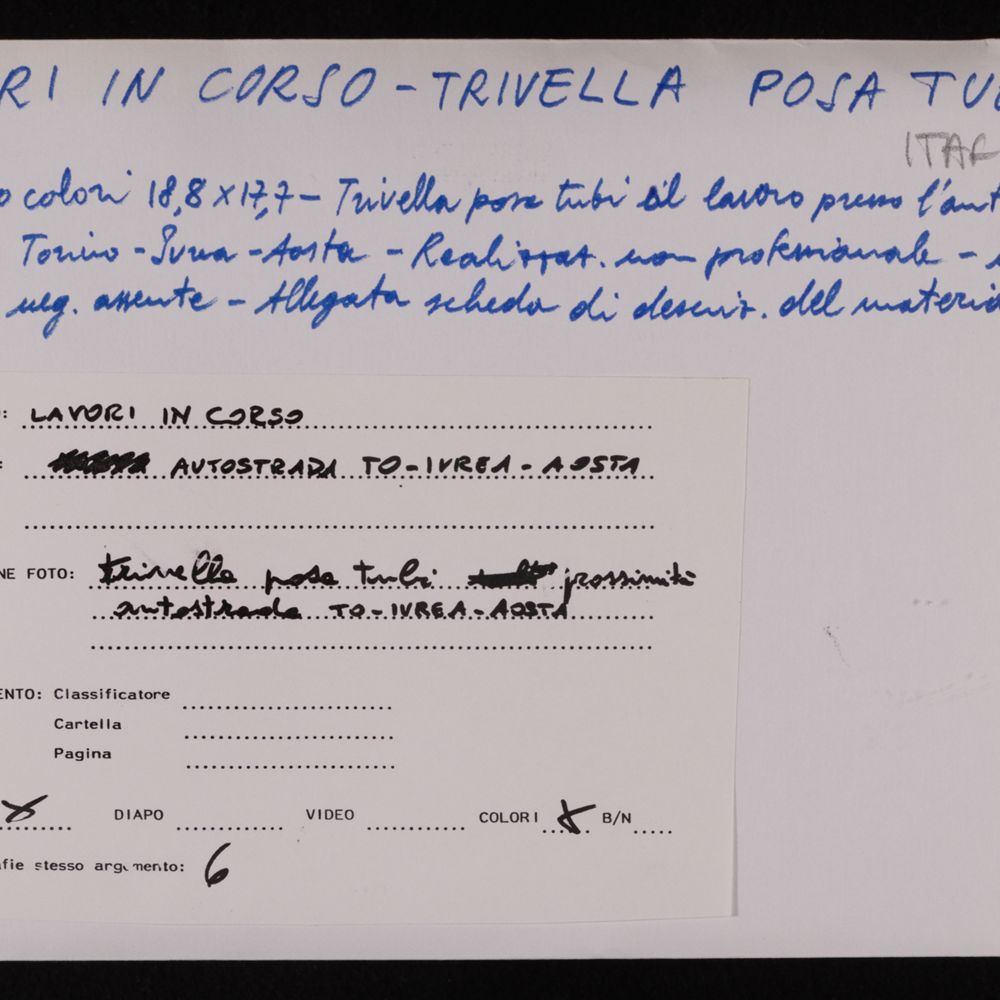 RI IN CORSO - TRIVELLA POSA TU
ITAF
o colori 18,8 x 17,7 - Trivella posa tubi al lavoro presso l'aut
Torino - Ivrea - Aosta - Realizzat. non professionale -
neg. assente - Allegata scheda di descriz. del materia
: LAVORI IN CORSO
: AUTOSTRADA TO-IVREA-AOSTA
NE FOTO: trivella posa tubi prossimità
autostrada TO-IVREA-AOSTA
ENTO: Classificatore
Cartella
Pagina
X DIAPO VIDEO COLORI X B/N
fie stesso argomento: 6